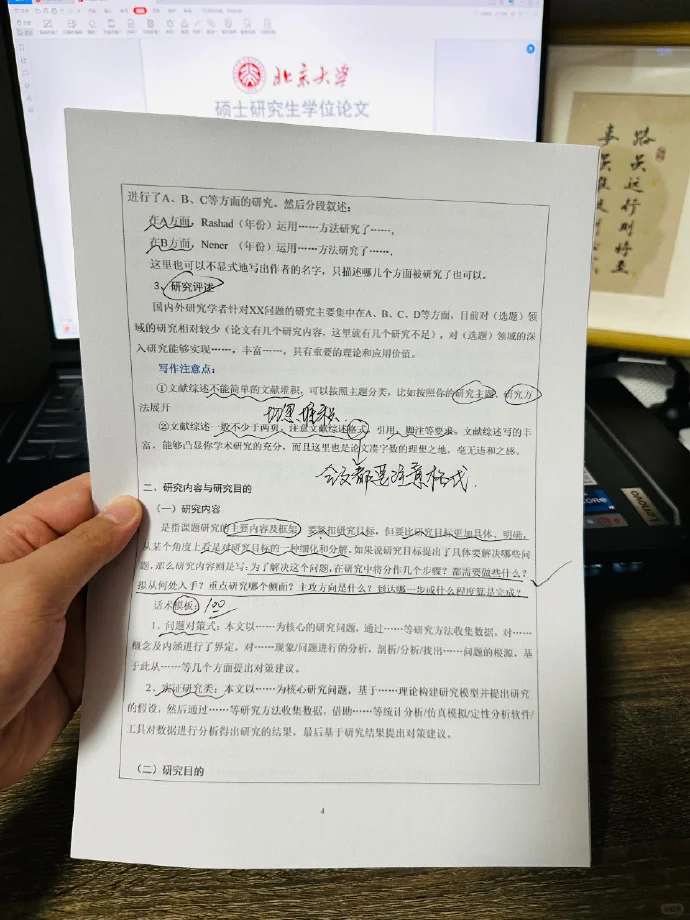 北京大学
硕士研究生学位论文
路虽远行则将至
事虽难做则必成
进行了A、B、C等方面的研究。然后分段叙述:
在A方面，Rashad（年份）运用……方法研究了……,
在B方面，Nener （年份）运用……方法研究了…….
这里也可以不显式地写出作者的名字，只描述哪几个方面被研究了也可以。
3、研究评述
国内外研究学者针对XX问题的研究主要集中在A、B、C、D等方面, 目前对（选题）领
域的研究相对较少（论文有几个研究内容，这里就有几个研究不足），对（选题）领域的深
入研究能够实现……，丰富……，具有重要的理论和应用价值。
写作注意点：
①文献综述不能简单的文献堆积，可以按照主题分类，比如按照你的研究主题、研究方
法展开
切忌堆积.
②文献综述一般不少于两页，注意文献综述格式，引用，脚注等要求。文献综述写的丰
富，能够凸显你学术研究的充分，而且这里也是论文凑字数的理想之地，毫无违和之感。
全文都要注意格式.
二、研究内容与研究目的
（一）研究内容
是指课题研究的主要内容及框架，要紧扣研究目标，但要比研究目标更加具体、明确，
从某个角度上看是对研究目标的一种细化和分解。如果说研究目标提出了具体要解决哪些问
题，那么研究内容则是写：为了解决这个问题，在研究中将分作几个步骤？都需要做些什么？
拟从何处入手？重点研究哪个侧面？主攻方向是什么？到达哪一步或什么程度算是完成？
话术模板： 100
1、问题对策式：本文以……为核心的研究问题，通过……等研究方法收集数据，对……
概念及内涵进行了界定，对……现象/问题进行的分析，剖析/分析/找出……问题的根源。基
于此从……等几个方面提出对策建议。
2、实证研究类：本文以……为核心研究问题，基于……理论构建研究模型并提出研究
的假设，然后通过……等研究方法收集数据，借助……等统计分析/仿真模拟/定性分析软件/
工具对数据进行分析得出研究的结果，最后基于研究结果提出对策建议。
（二）研究目的
4
Lenovo